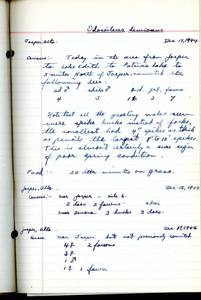 Odocoileus hemionus
Jasper, Alta. Dec 17, 1944
Census:- Today in the area from Jasper
to Lake Edith to Patricia Lake to
3 miles North of Jasper, counted the
following deer.
4 3 18 3 7
Note that all the yearling males seen
were spike bucks instead of forks,
the smallest had 4" spikes as thick
as pencils the largest 8 to 10" spikes.
This is almost certainly a sure sign
of poor spring condition.
Food:- 20 deer mintes on grass.
Jasper, Alta. Dec 18, 1944
Census:- near Jasper - mile 6.
2 does 2 fawns
near 3 bucks 3 does.
Jasper, Alta. Dec 19, 1944
Census, near Jasper but not previously counted
4♀ 2 fawns
3♀
1♂
1♀ 1 fawn